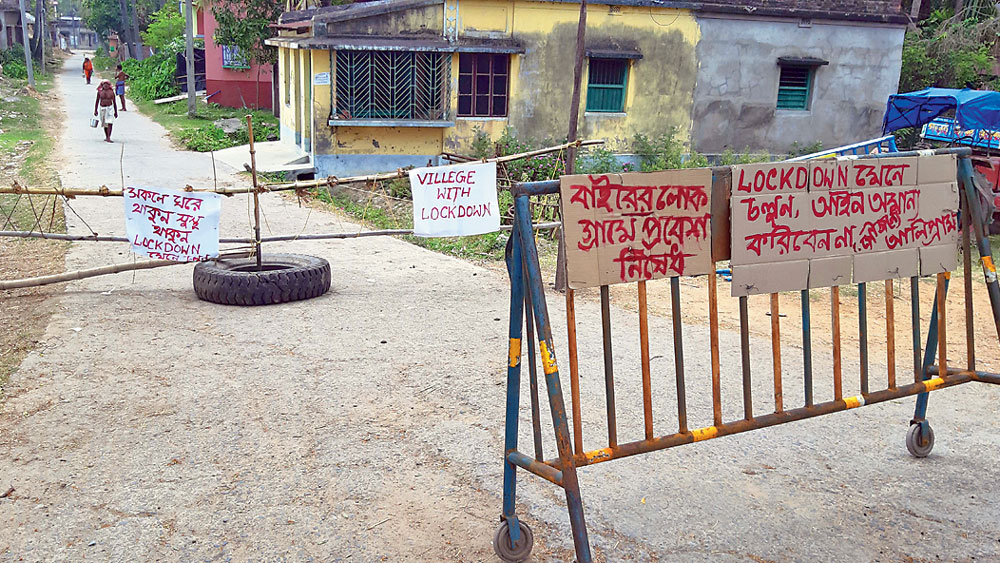 সকলে ঘরে
থাকুন সুস্থ
থাকুন
LOCKDOWN
মেনে
VILLEGE
WITH
LOCKDOWN
বাইরের লোক
গ্রামে প্রবেশ
নিষেধ
LOCKDOWN মেনে
চলুন, আইন অমান্য
করিবেন না,